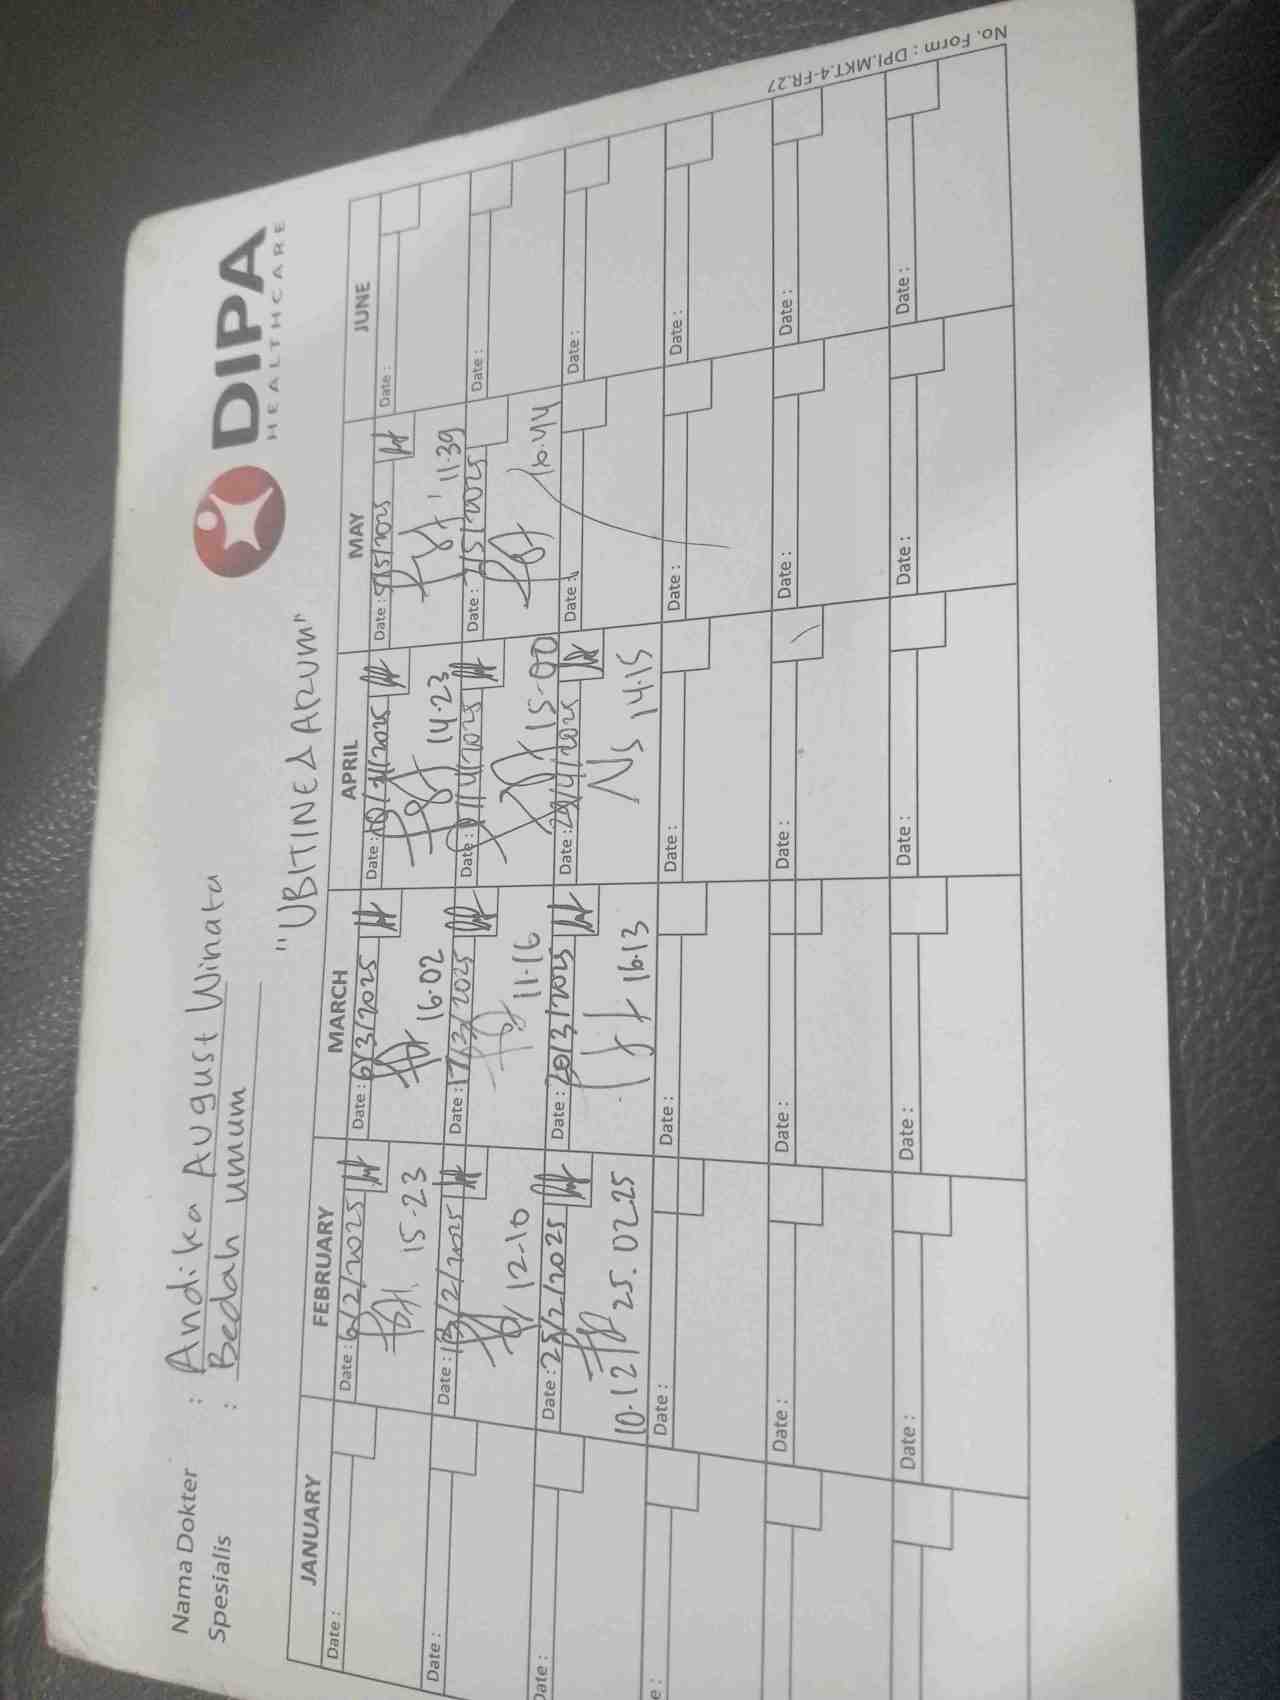 Nama Dokter : Andika August Winata
Spesialis : Bedah umum
"UBITINED ARUM"
DIPA
HEALTHCARE
JANUARY FEBRUARY MARCH APRIL MAY JUNE
Date : Date : 6/2/2025 Date : 6/3/2025 Date : Date : 5/5/2025 Date :
15-23 16.02 14.23 11.39
Date : Date : 13/2/2025 Date : 17/3/2025 Date : Date : /5/2025 Date :
12-10 11-16 15-00 16.44
Date : Date : 25/2/2025 Date : 20/3/2025 Date : 29/4/2025 Date : Date :
10.12 25.0225 16.13 14.15
e : Date : Date : Date : Date : Date :
Date : Date : Date : Date : Date :
Date : Date : Date : Date : Date :
No. Form : DPI.MKT.4-FR.27